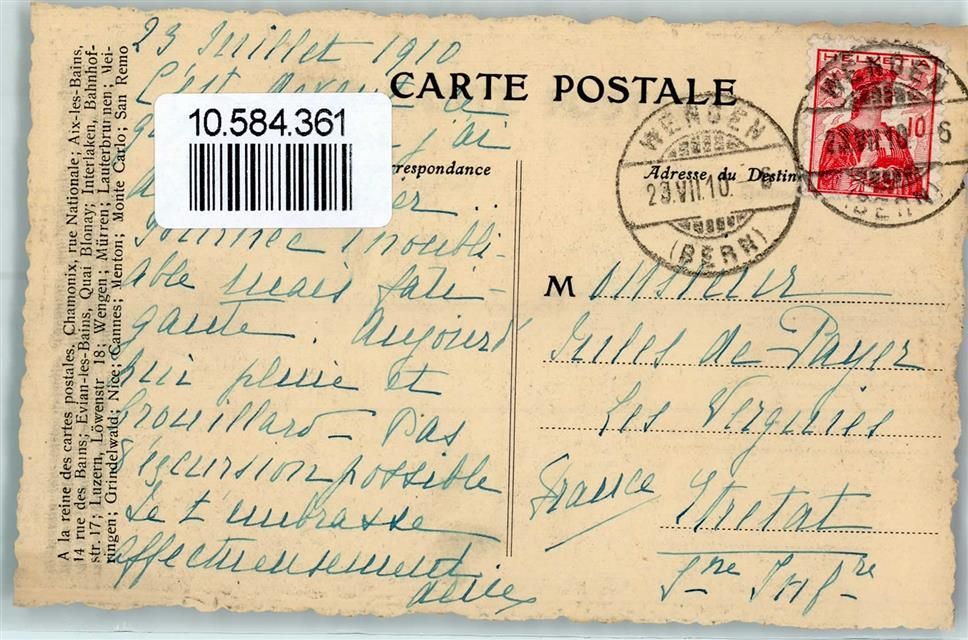 23 Juillet 1910
CARTE POSTALE
C'est avec ce
10.584.361
j'ai
respondance
Adresse du Destin
HELVETIA
10
WENGEN
23.VII.10. 6
(BERN)
WENGEN
23.VII.10 6
(BERN)
journée inoubli-
able mais fati-
gante. Aujourd
hui pluie et
brouillard - Pas
d'excursion possible
Je t'embrasse
affectueusement
Monsieur
Jules de Payer
Les Verguies
France
Etretat
Sne Infre
A la reine des cartes postales. Chamonix, rue Nationale; Aix-les-Bains,
14 rue des Bains; Evian-les-Bains, Quai Blonay; Interlaken, Bahnhof-
str. 17; Luzern, Löwenstr 18; Wengen; Mürren; Lauterbrunnen; Mei-
ringen; Grindelwald; Nice; Cannes; Menton; Monte Carlo; San Remo